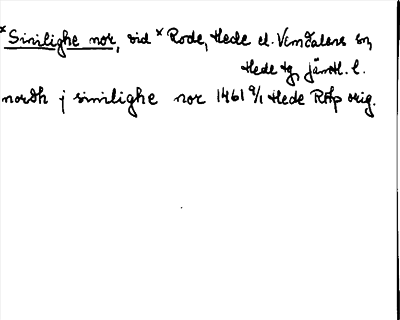 *Sinilighe nor, vid *Rode, Hede el. Vemdalens sn,
Hede tg, Jämtl. l.
nordh j sinilighe nor 1461 9/1 Hede RAp orig.